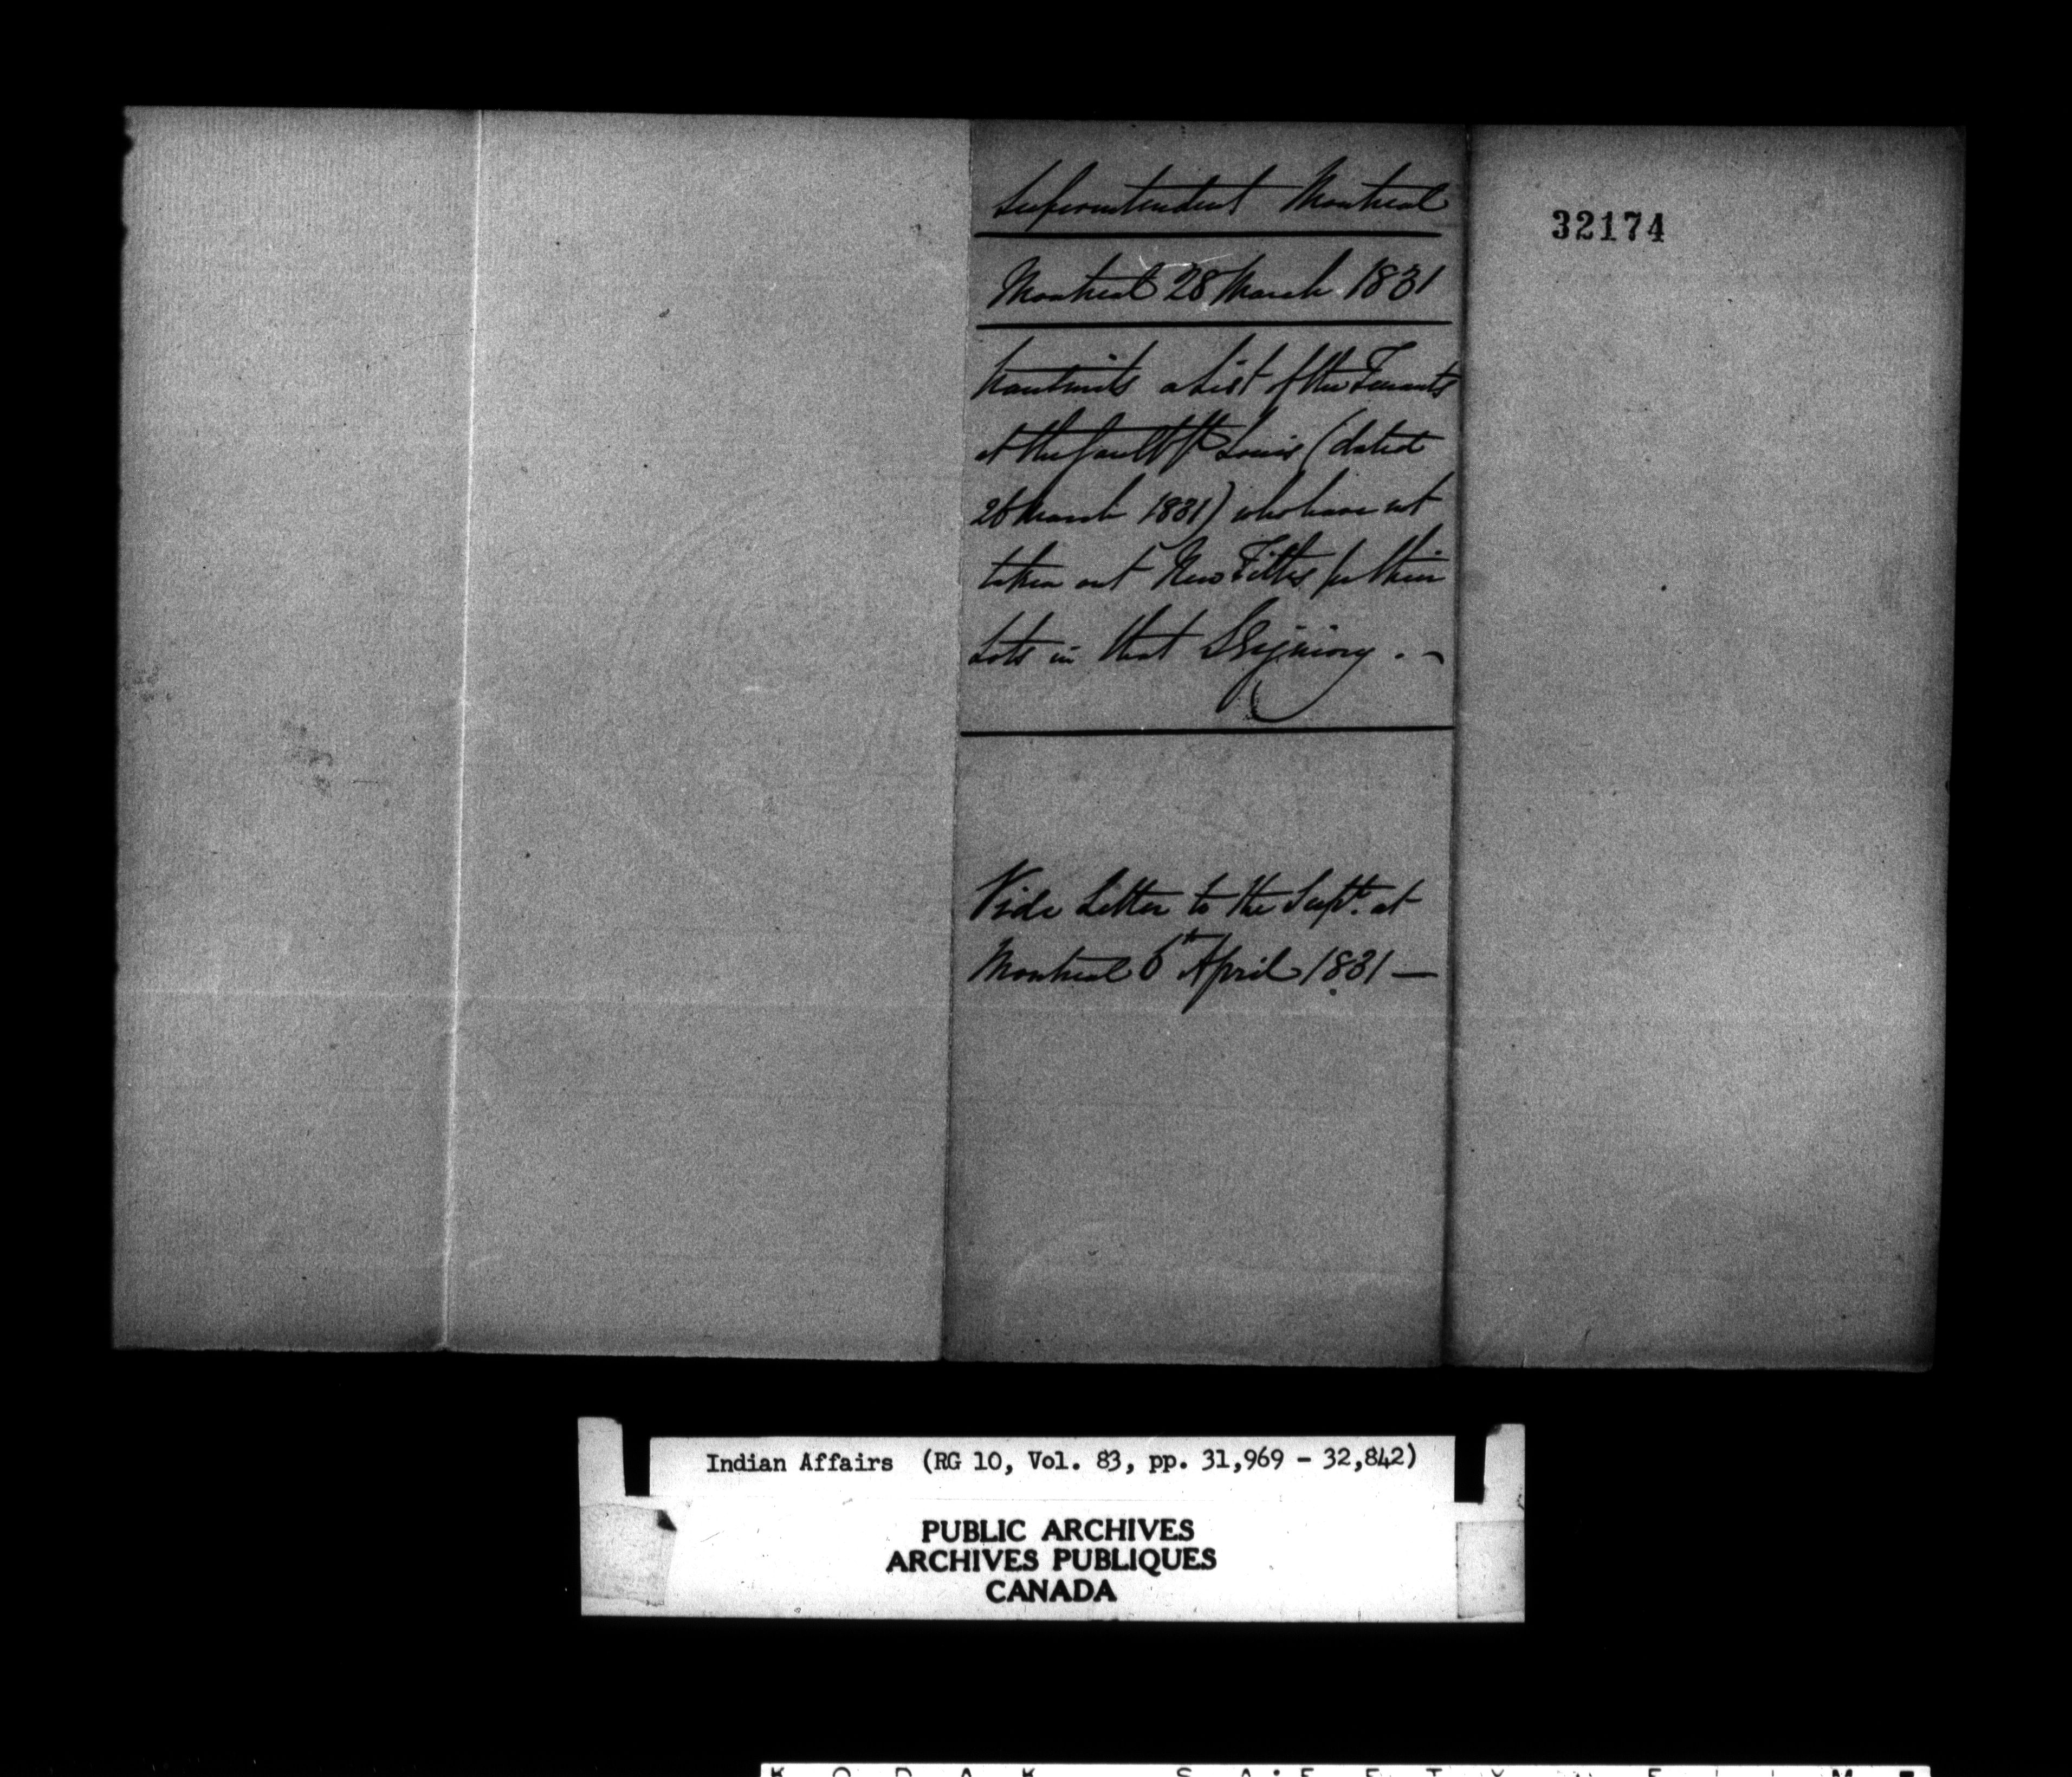 Superintendent Montreal
Montreal 28 March 1831
32174
Transmits a List of the Tenants
at the Sault St Louis (dated
26 March 1831) who have not
taken out New Titles for their
Lots in that Seigniory . -
Vide Letter to the Supt. at
Montreal 6th April 1831 —
Indian Affairs (RG 10, Vol. 83, pp. 31,969 - 32,842)
PUBLIC ARCHIVES
ARCHIVES PUBLIQUES
CANADA